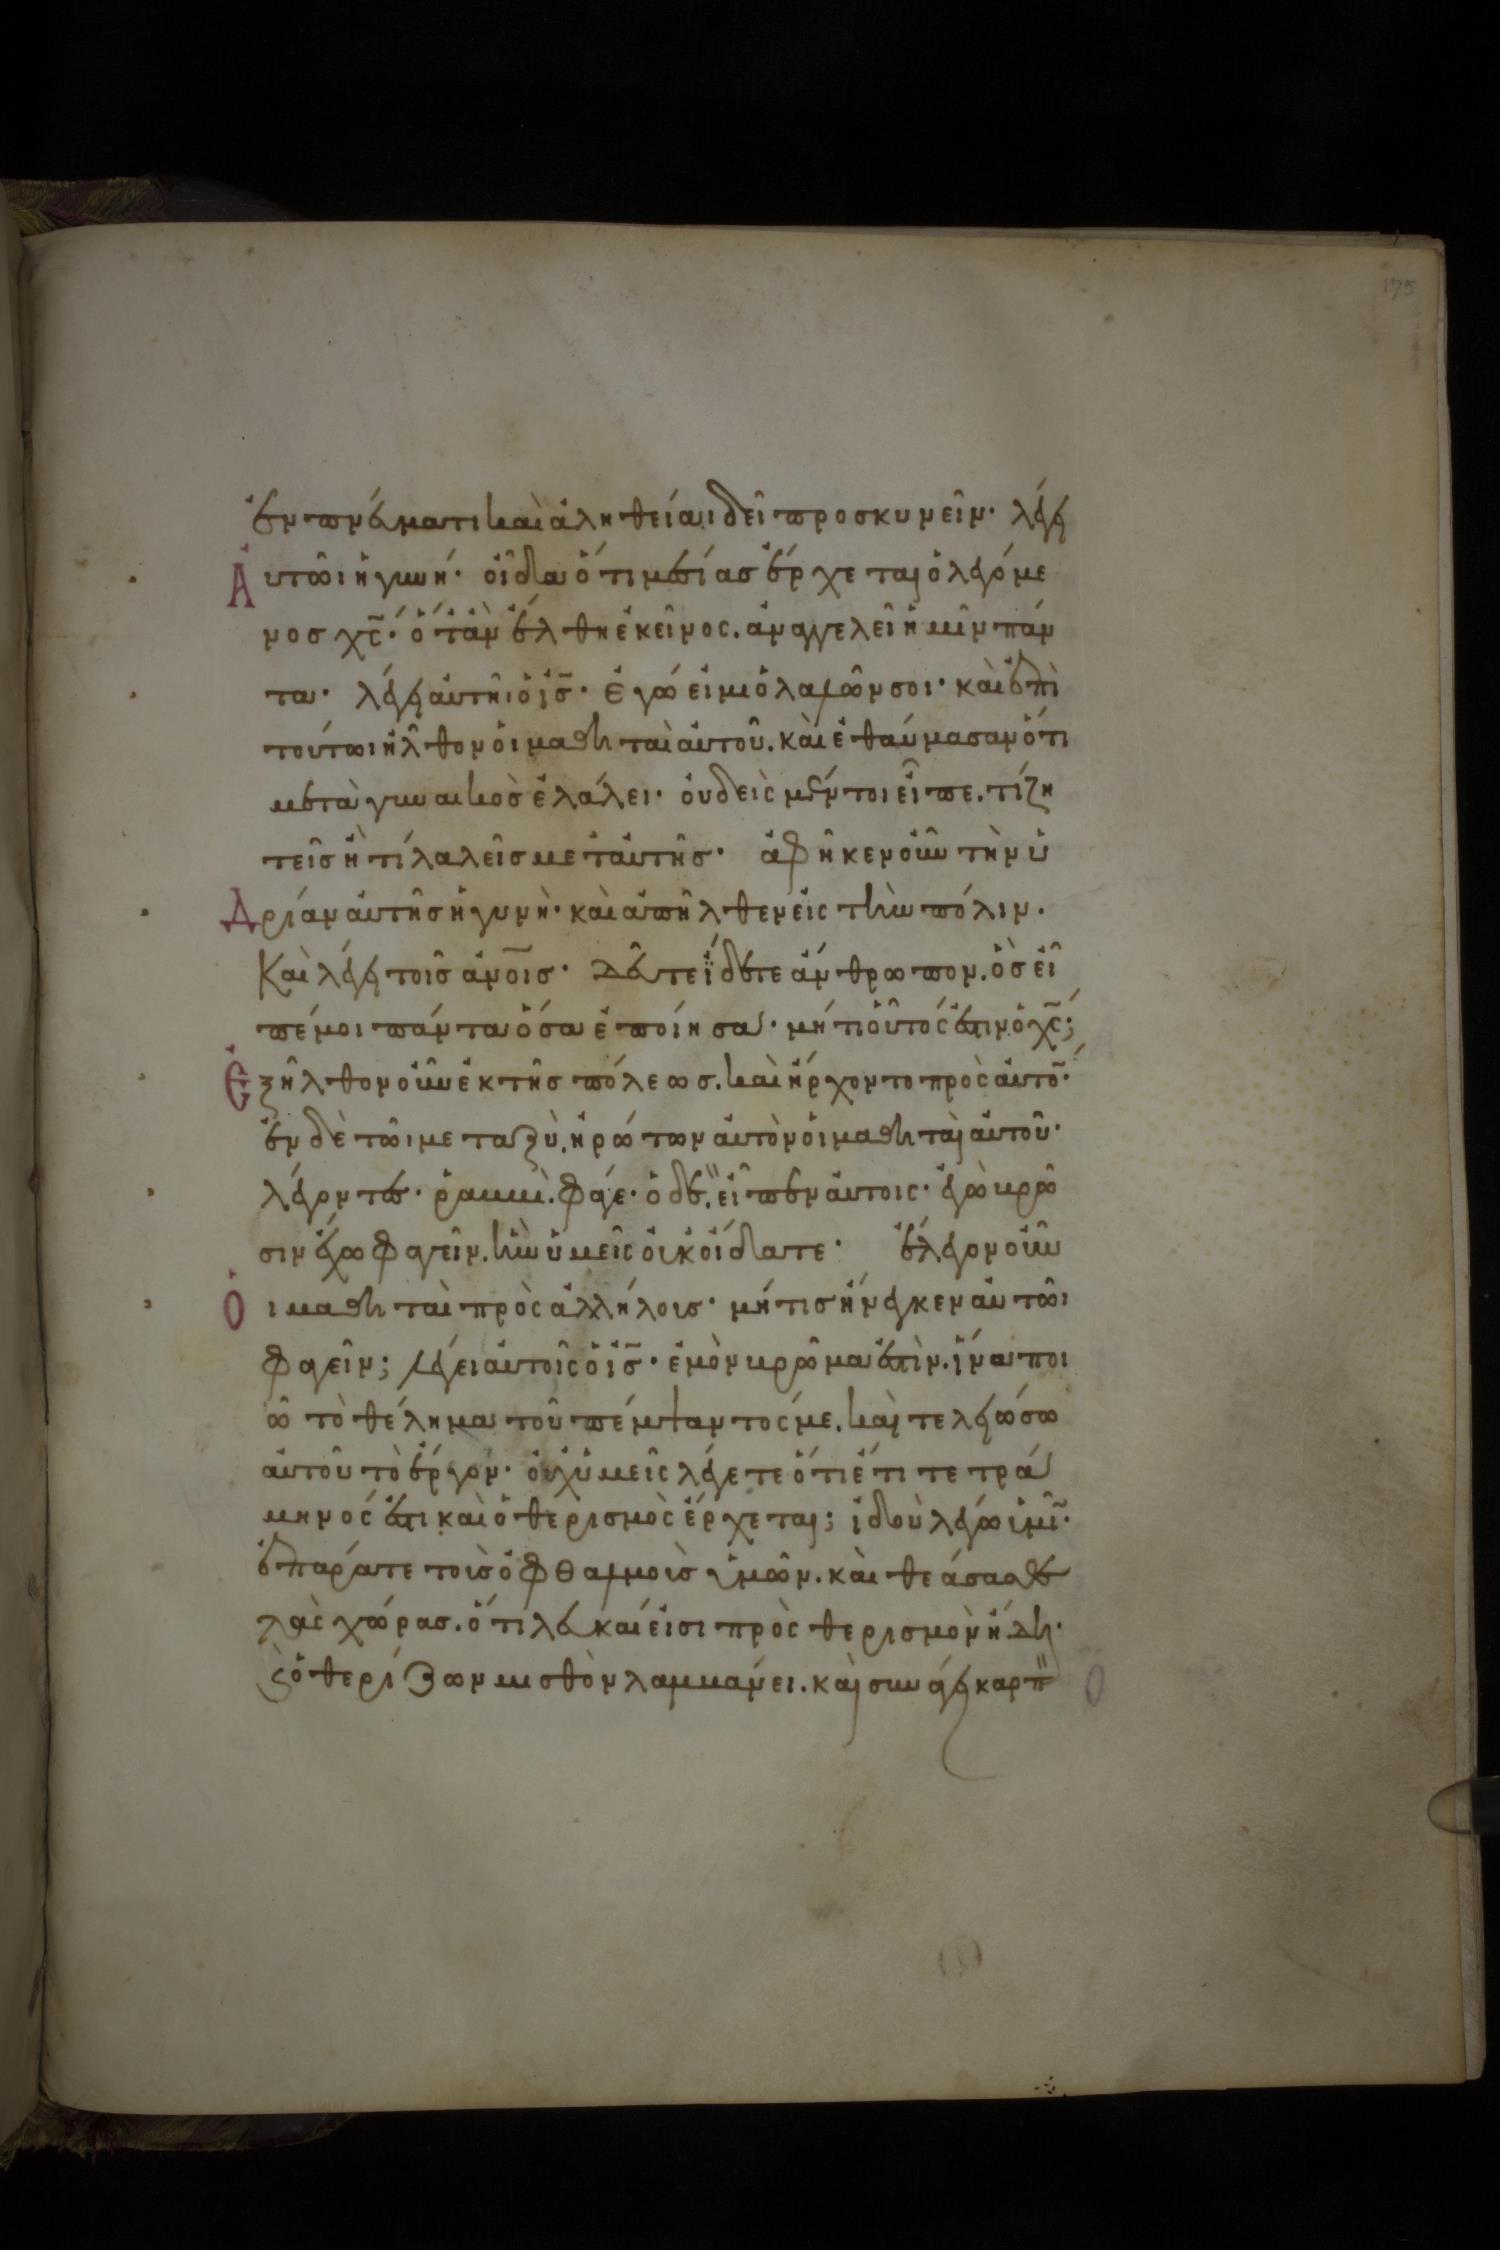 175
ἐν πνεύματι καὶ ἀληθείαι δεῖ προσκυνεῖν· λέγει
Αὐτῶι ἡ γυνή· οἶδα ὅτι μεσίας ἔρχεται ὁ λεγόμε
νος χ̅ς̅· ὅτἂν ἔλθη ἐκεῖνος. ἀναγγελεῖ ἡμῖν πάν
τα· λέγει αὐτῆι ὁ ι̅ς̅· ἐγώ εἰμι ὁ λαλῶν σοι· καὶ ἐπὶ
τούτωι ἦλθον οἱ μαθηταὶ αὐτοῦ. καὶ ἐθαύμασαν ὅτι
μετὰ γυναικὸς ἐλάλει· οὐδεὶς μέντοι εἶπε. τί ζη
τεῖς ἢ τί λαλεῖς μετ' αὐτῆς· ἀφῆκεν οὖν τὴν ὑ
Δρίαν αὐτῆς ἡ γυνὴ· καὶ ἀπῆλθεν εἰς τὴν πόλιν.
Καὶ λέγει τοῖς ἀν̅οις· Δεῦτε ἴδετε ἄνθρωπον. ὃς εἶ
πέ μοι πάντα ὅσα ἐποίησα· μή τι οὗτός ἐστιν ὁ χ̅ς̅;
Ἐξῆλθον οὖν ἐκ τῆς πόλεως. καὶ ἤρχοντο πρὸς αὐτό̅·
ἐν δὲ τῶι μεταξὺ. ἠρώτων αὐτὸν οἱ μαθηταὶ αὐτοῦ·
λέγοντες· ῥαββὶ. φάγε· ὁ δὲ. εἶπεν αὐτοις· ἐγὼ βρῶ
σιν ἔχω φαγεῖν. ἣν ὑμεῖς οὐκ οἴδατε· ἔλεγον οὖν
Ὁι μαθηταὶ πρὸς ἀλλήλοις· μή τις ἤνεγκεν αὐτῶι
φαγεῖν; λέγει αὐτοῖς ὁ ι̅ς̅· ἐμὸν βρῶμα ἐστὶν. ἵνα ποι
ῶ τὸ θέλημα τοῦ πέμψαντός με. καὶ τελειώσω
αὐτοῦ τὸ ἔργον· οὐχ ὑμεῖς λέγετε ὅτι ἔτι τετρά
μηνός ἐστι καὶ ὁ θερισμὸς ἔρχεται; ἰδοὺ λέγω ὑμῖ̅·
ἐπάρατε τοὺς ὀφθαλμοὺς ὑμῶν. καὶ θεάσασθε
τὰς χώρας. ὅτι λευκαί εἰσι πρὸς θερισμὸν ἤδη·
ϗ ὁ θερίζων μισθὸν λαμβάνει. καὶ συνάγει καρπ